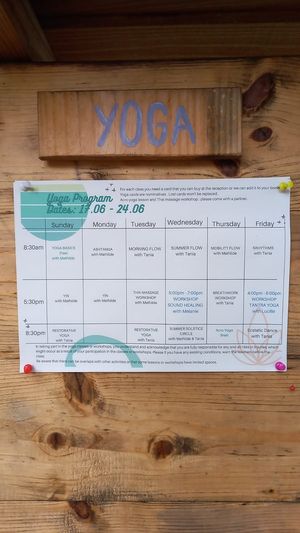 YOGA
Yoga Program
Dates: 17.06 - 24.06
For each class you need a card that you can buy at the reception or we can add it to your
Yoga cards are nominatives . Lost cards won't be replaced.
Acro yoga lesson and Thai massage workshop : please come with a partner.
Sunday Monday Tuesday Wednesday Thursday Friday
8:30am YOGA BASICS ASHTANGA MORNING FLOW SUMMER FLOW MOBILITY FLOW 5RHYTHMS
with Mathilde with Mathilde with Tania with Tania with Tania with Tania
5:30pm YIN YIN THAI MASSAGE WORKSHOP 5:00pm - 7:00pm WORKSHOP SOUND HEALING BREATHWORK WORKSHOP 4:00pm - 6:00pm WORKSHOP TANTRA YOGA
with Mathilde with Mathilde with Mathilde with Melanie with Tania with Lucilla
8:30pm RESTORATIVE YOGA RESTORATIVE YOGA SUMMER SOLSTICE CIRCLE Acro Yoga Ecstatic Dance
with Tania with Tania with Mathilde & Tania with Tania
In taking part in the yoga classes or workshops, you understand and acknowledge that you are fully responsible for any and all
might occur as a result of your participation in the classes or workshops. Please if you have any existing conditions, warn the
class.
Be aware that there can be overlaps with other activities or that some lessons or workshops have limited spaces.